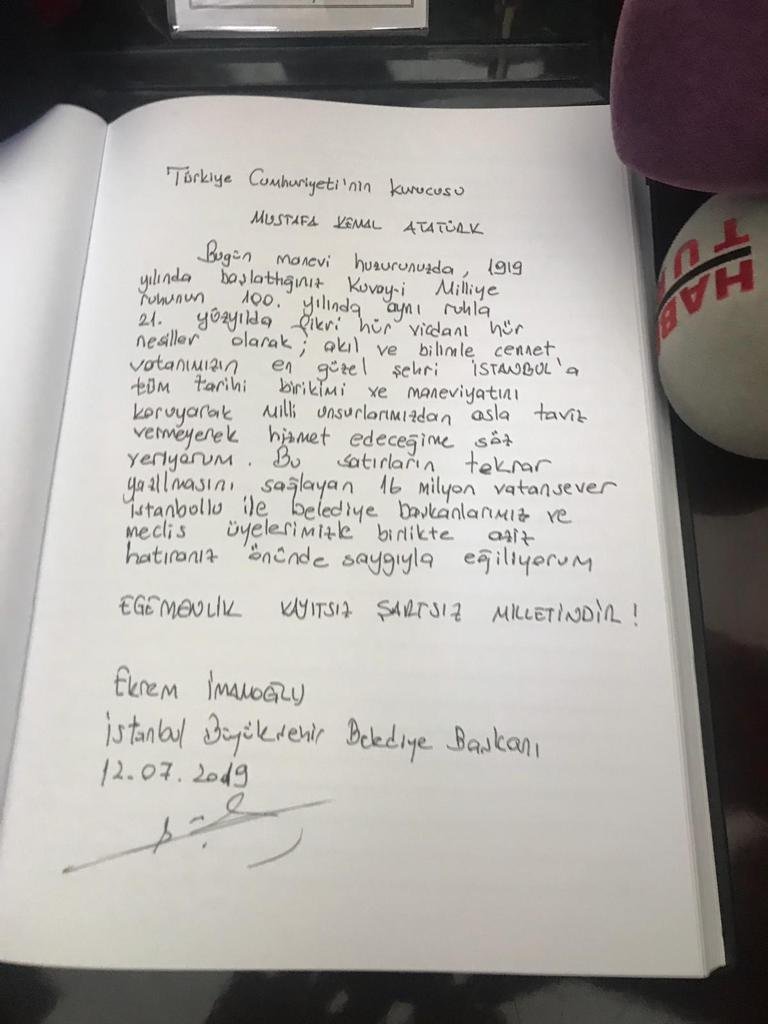 Türkiye Cumhuriyeti'nin kurucusu
MUSTAFA KEMAL ATATÜRK
Bugün manevi huzurunuzda, 1919
yılında başlattığınız Kuvay-i Milliye
ruhunun 100. yılında aynı ruhla
21. yüzyılda fikri hür vicdanı hür
nesiller olarak; akıl ve bilimle cennet
vatanımızın en güzel şehri İSTANBUL'a
tüm tarihi birikimi ve maneviyatını
koruyarak Milli unsurlarımızdan asla taviz
vermeyerek hizmet edeceğime söz
veriyorum. Bu satırların tekrar
yazılmasını sağlayan 16 milyon vatansever
İstanbullu ile belediye başkanlarımız ve
meclis üyelerimizle birlikte aziz
hatıranız önünde saygıyla eğiliyorum
EGEMENLİK KAYITSIZ ŞARTSIZ MİLLETİNDİR!
Ekrem İMAMOĞLU
İstanbul Büyükşehir Belediye Başkanı
12.07.2019
HAB
TÜ